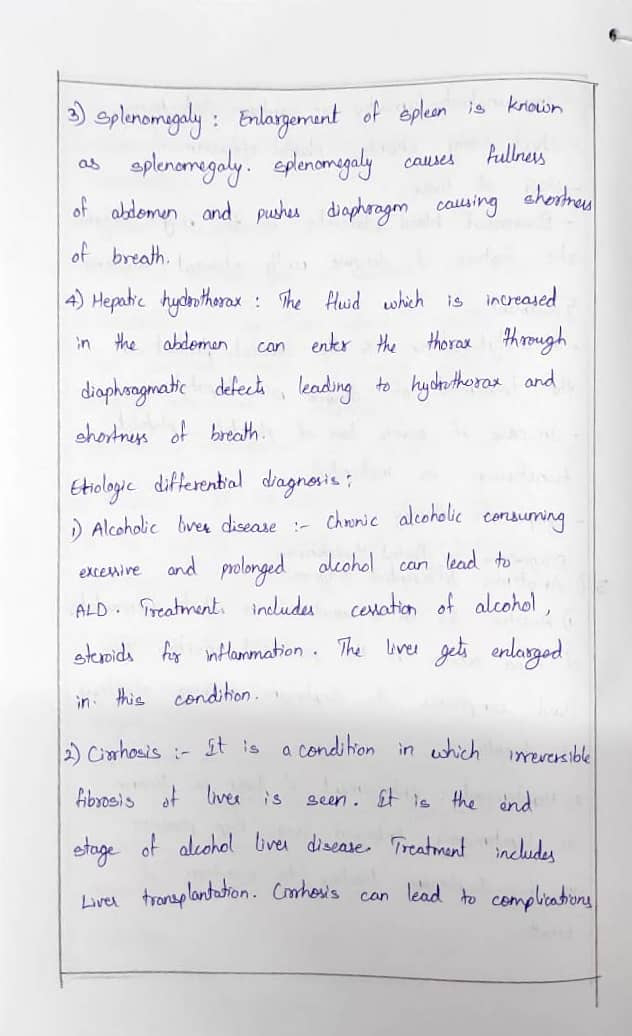 3) Splenomegaly : Enlargement of spleen is known
as splenomegaly. splenomegaly causes fullness
of abdomen and pushes diaphragm causing shortness
of breath.
4) Hepatic hydrothorax : The fluid which is increased
in the abdomen can enter the thorax through
diaphragmatic defects, leading to hydrothorax and
shortness of breath.
Etiologic differential diagnosis :
1) Alcoholic liver disease :- Chronic alcoholic consuming
excessive and prolonged alcohol can lead to
ALD. Treatment includes cessation of alcohol,
steroids for inflammation. The liver gets enlarged
in this condition.
2) Cirrhosis :- It is a condition in which irreversible
fibrosis of liver is seen. It is the end
stage of alcohol liver disease. Treatment includes
Liver transplantation. Cirrhosis can lead to complications